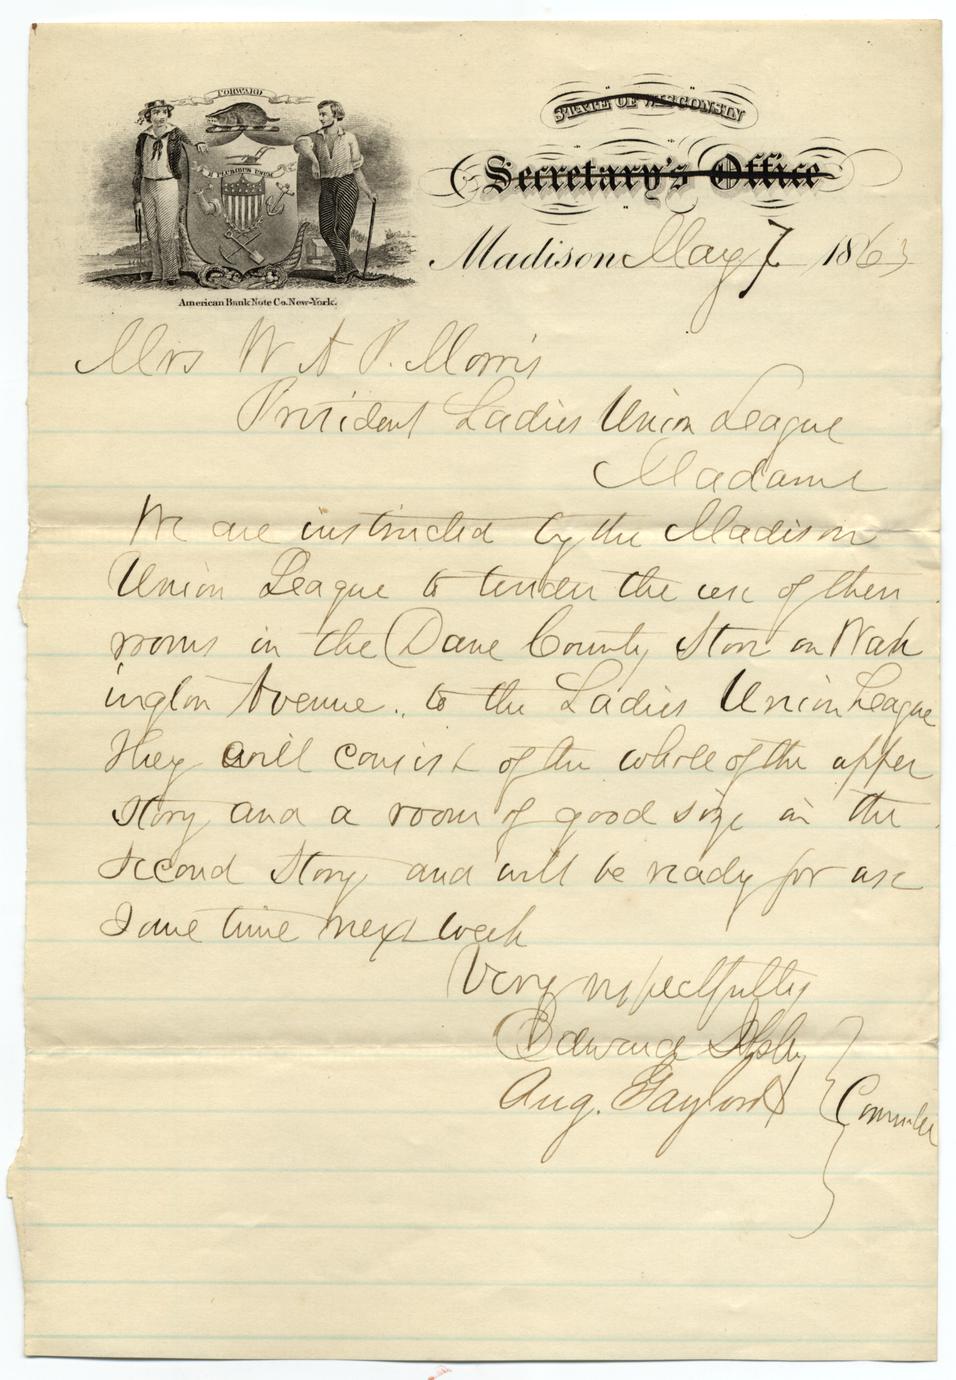 FORWARD
E PLURIBUS UNUM
American Bank Note Co. New-York.
STATE OF WISCONSIN
Secretary's Office
Madison May 7 1863
Mrs W A P. Morris
President Ladies Union League
Madame
We are instructed by the Madison
Union League to tender the use of their
rooms in the Dane County Store on Wash
ington Avenue.. to the Ladies Union League
They will consist of the whole of the upper
story and a room of good size in the
second story and will be ready for use
Some time next week
Very respectfully
Edward Ilsley
Aug. Gaylord
Committee